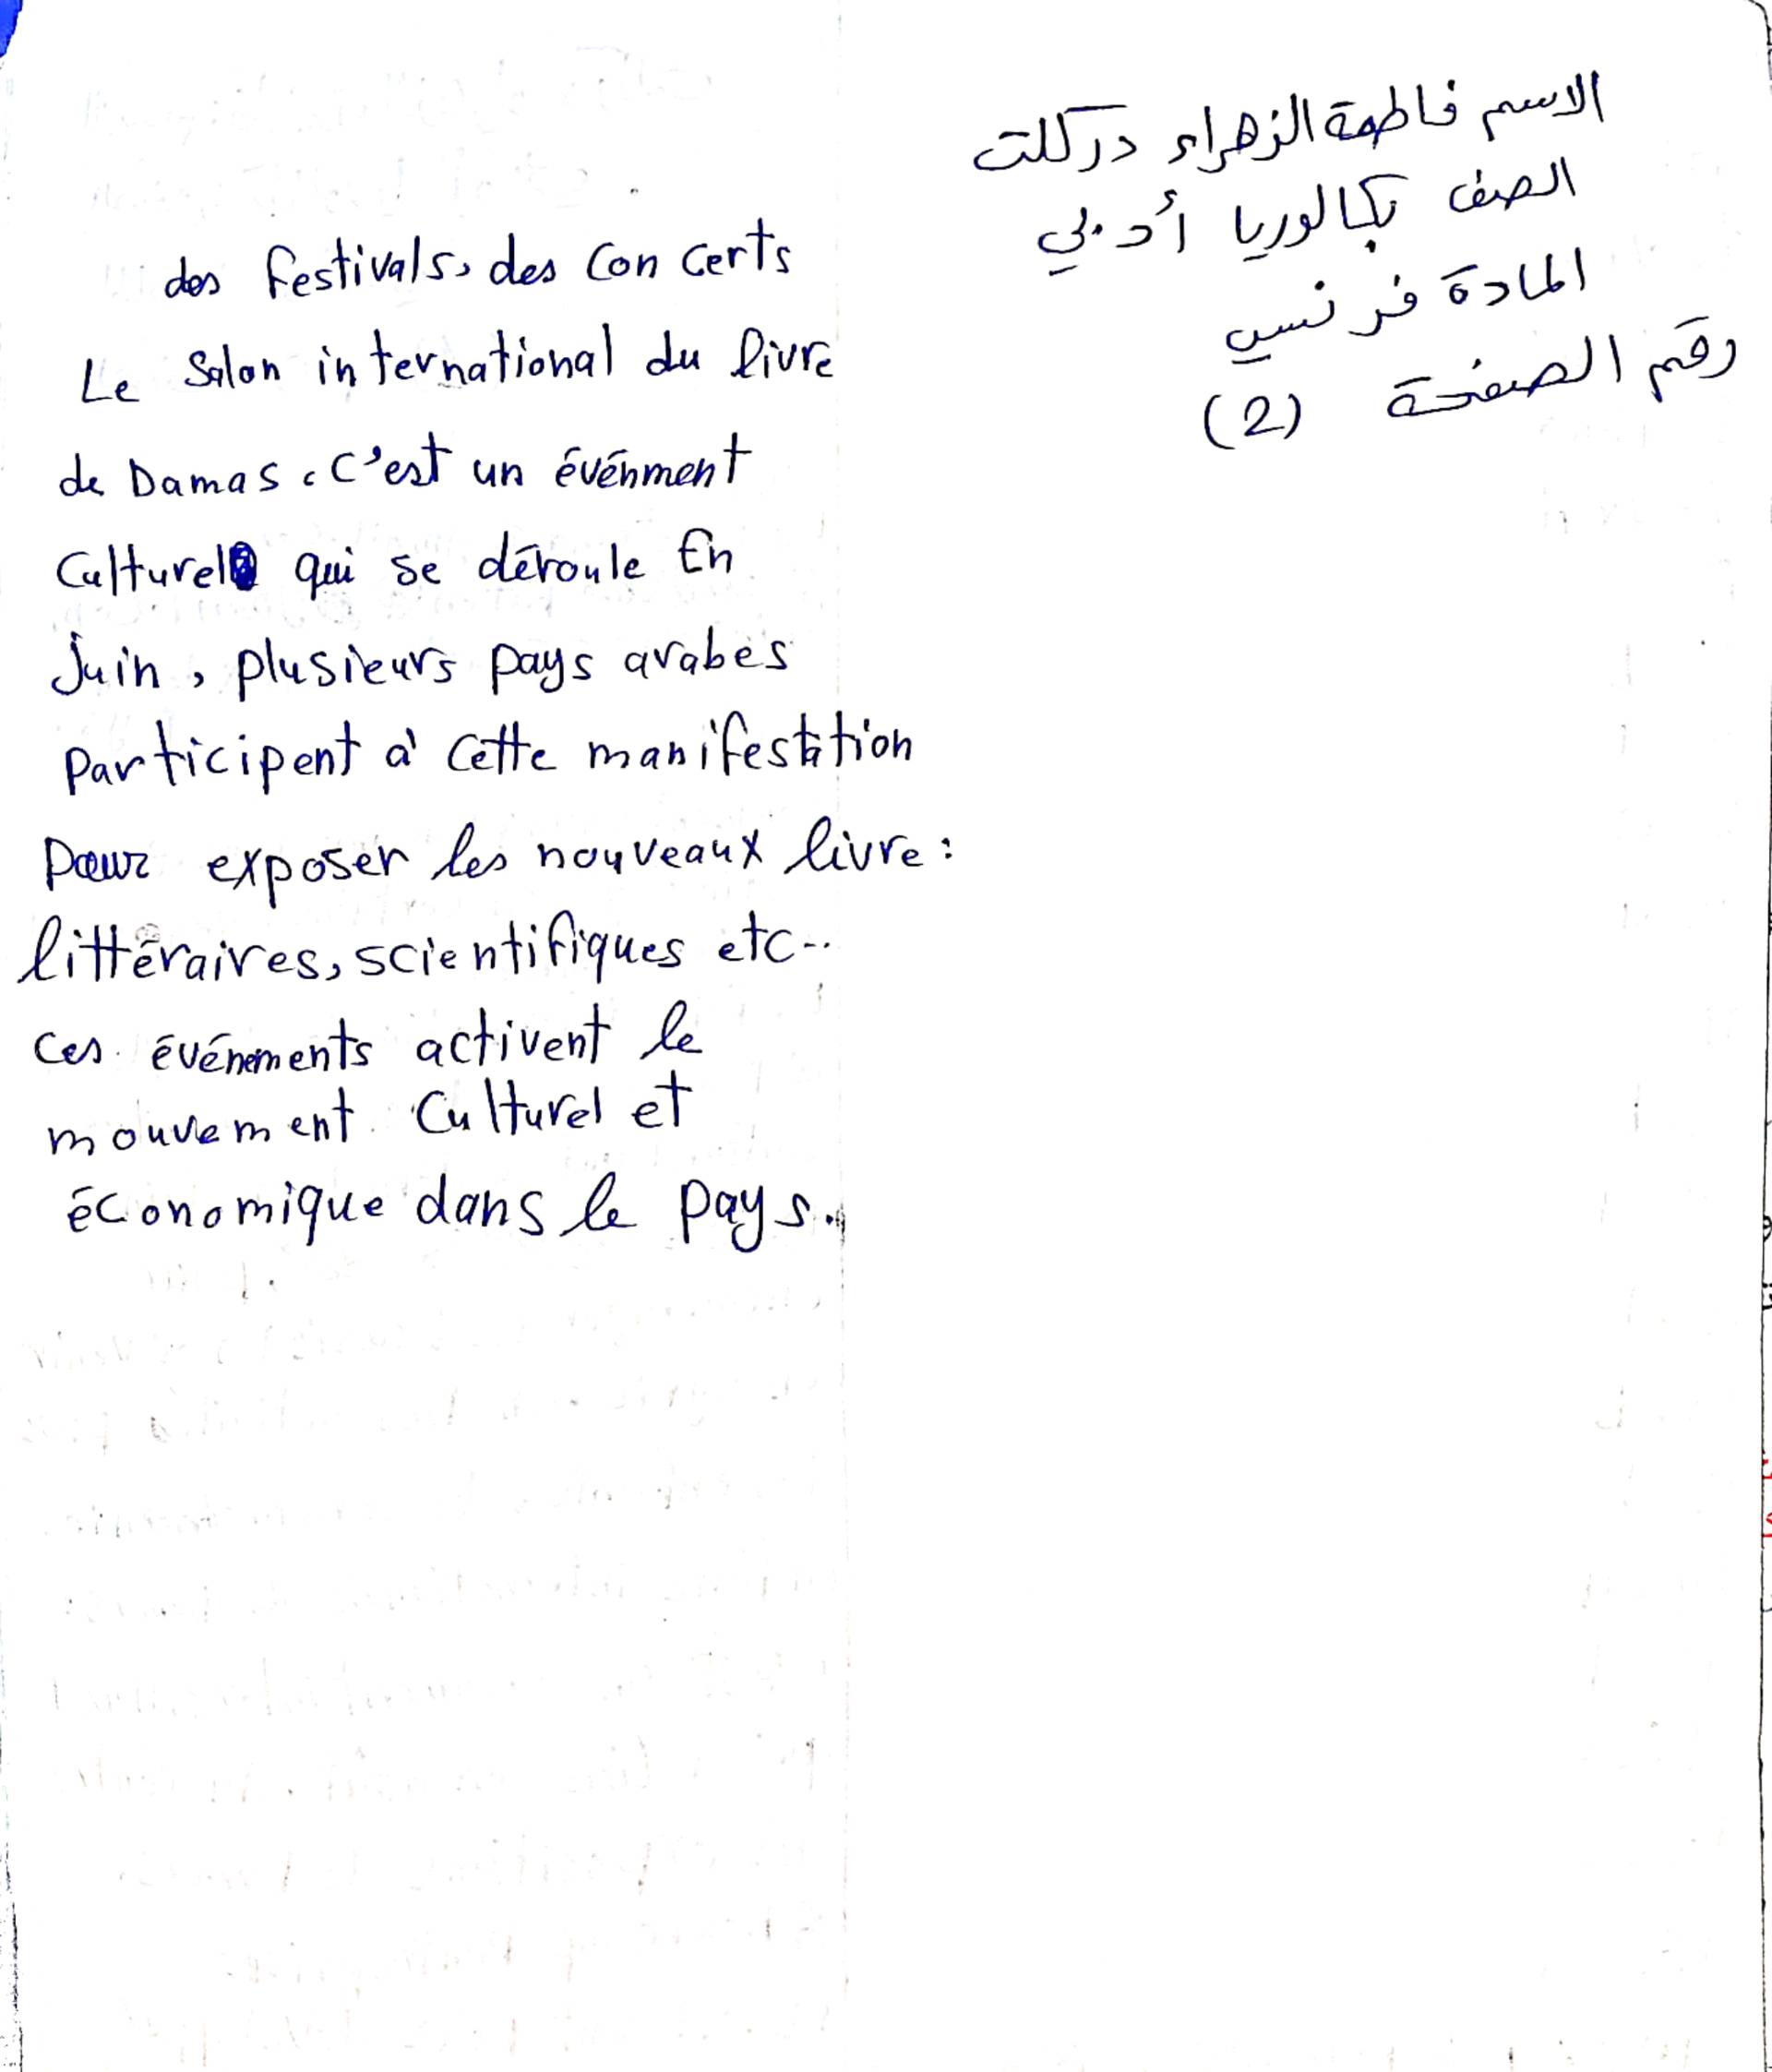 الاسم فاطمة الزهراء دركلت
الصف بكالوريا أدبي
المادة فرنسي
رقم الصفحة (2)
des festivals, des Concerts
Le Salon international du livre
de Damas. C'est un événment
Culturel qui se déroule En
juin, plusieurs pays arabes
participent à cette manifestation
pour exposer les nouveaux livre:
littéraires, scientifiques etc..
ces événements activent le
mouvement Culturel et
économique dans le pays.